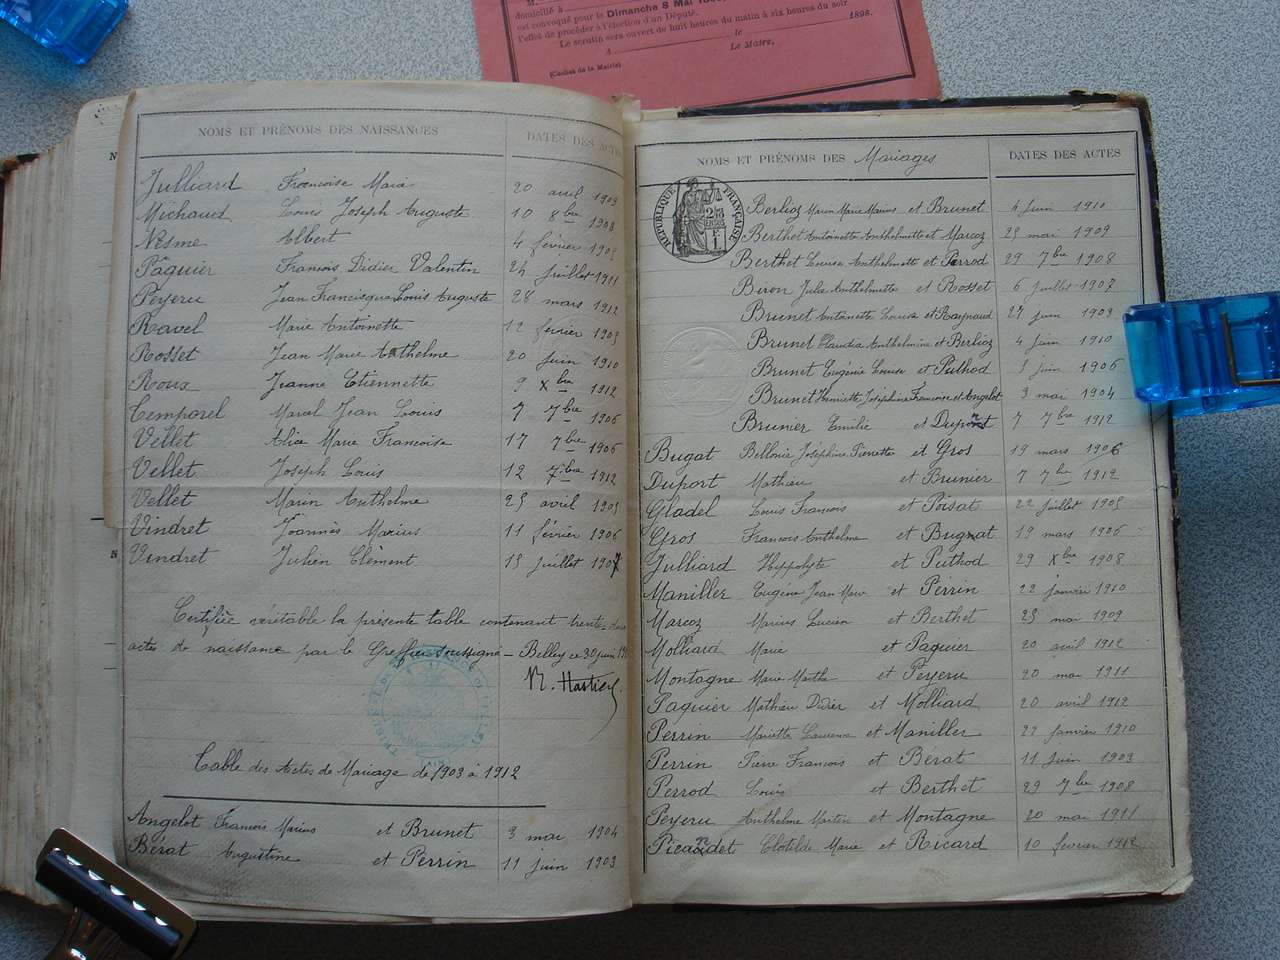 M.
domicilié à
est convoqué pour le Dimanche 8 Mai
l'effet de procéder à l'élection d'un Député.
Le scrutin sera ouvert de huit heures du matin à six heures du soir
A le 1898.
Le Maire,
(Cachet de la Mairie)
NOMS ET PRÉNOMS DES NAISSANCES DATES DES ACTES
Julliard Francoise Marie 20 avril 1909
Michaud Louis Joseph Auguste 10 8bre 1908
Nesme Albert 4 février 1905
Pâquier Francois Didier Valentin 24 juillet 1911
Peyeru Jean Francisque Louis Auguste 28 mars 1912
Ravel Marie Antoinette 12 février 1905
Rosset Jean Marie Anthelme 20 juin 1910
Roux Jeanne Etiennette 9 Xbre 1912
Temporel Marcel Jean Louis 7 7bre 1906
Vellet Alice Marie Francoise 17 7bre 1906
Vellet Joseph Louis 12 7bre 1912
Vellet Marin Anthelme 25 avril 1905
Vindret Joannès Marius 11 février 1906
Vindret Julien Clément 15 juillet 1907
Certifiée véritable la présente table contenant trente-deux
actes de naissance par le Greffier soussigné - Belley ce 30 juin
Table des Actes de Mariage de 1903 à 1912
Angelot Francois Marius et Brunet 3 mai 1904
Bérat Augustine et Perrin 11 juin 1903
NOMS ET PRÉNOMS DES Mariages DATES DES ACTES
RÉPUBLIQUE FRANÇAISE
Berlioz Marin Marie Marius et Brunet 4 juin 1910
Berthet Antoinette Anthelmette et Marcoz 25 mai 1909
Berthet Louise Anthelmette et Perrod 29 7bre 1908
Biron Julie Anthelmette et Rosset 6 juillet 1907
Brunet Antoinette Louise et Raynaud 27 juin 1903
Brunet Claudia Anthelmine et Berlioz 4 juin 1910
Brunet Eugénie Louise et Puthod juin 1906
Brunet Henriette Joséphine Francoise et Angelot 3 mai 1904
Brunier Emilie et Duport 7 7bre 1912
Bugat Bellonie Joséphine Pierrette et Gros 19 mars 1906
Duport Mathieu et Brunier 7 7bre 1912
Gladel Louis Francois et Poisat 22 juillet 1905
Gros Francois Anthelme et Bugnat 19 mars 1906
Julliard Hippolyte et Puthod 29 Xbre 1908
Maniller Eugène Jean Marie et Perrin 22 janvier 1910
Marcoz Marius Lucien et Berthet 25 mai 1909
Molliard Marie et Paquier 20 avril 1912
Montagne Marie Marthe et Peyeru 20 mai 1911
Paquier Mathieu Didier et Molliard 20 avril 1912
Perrin Mariette Laurence et Maniller 22 janvier 1910
Perrin Pierre Francois et Bérat 11 juin 1903
Perrod Louis et Berthet 29 7bre 1908
Peyeru Anthelme Martin et Montagne 20 mai 1911
Picandet Clotilde Marie et Ricard 10 fevrier 1912